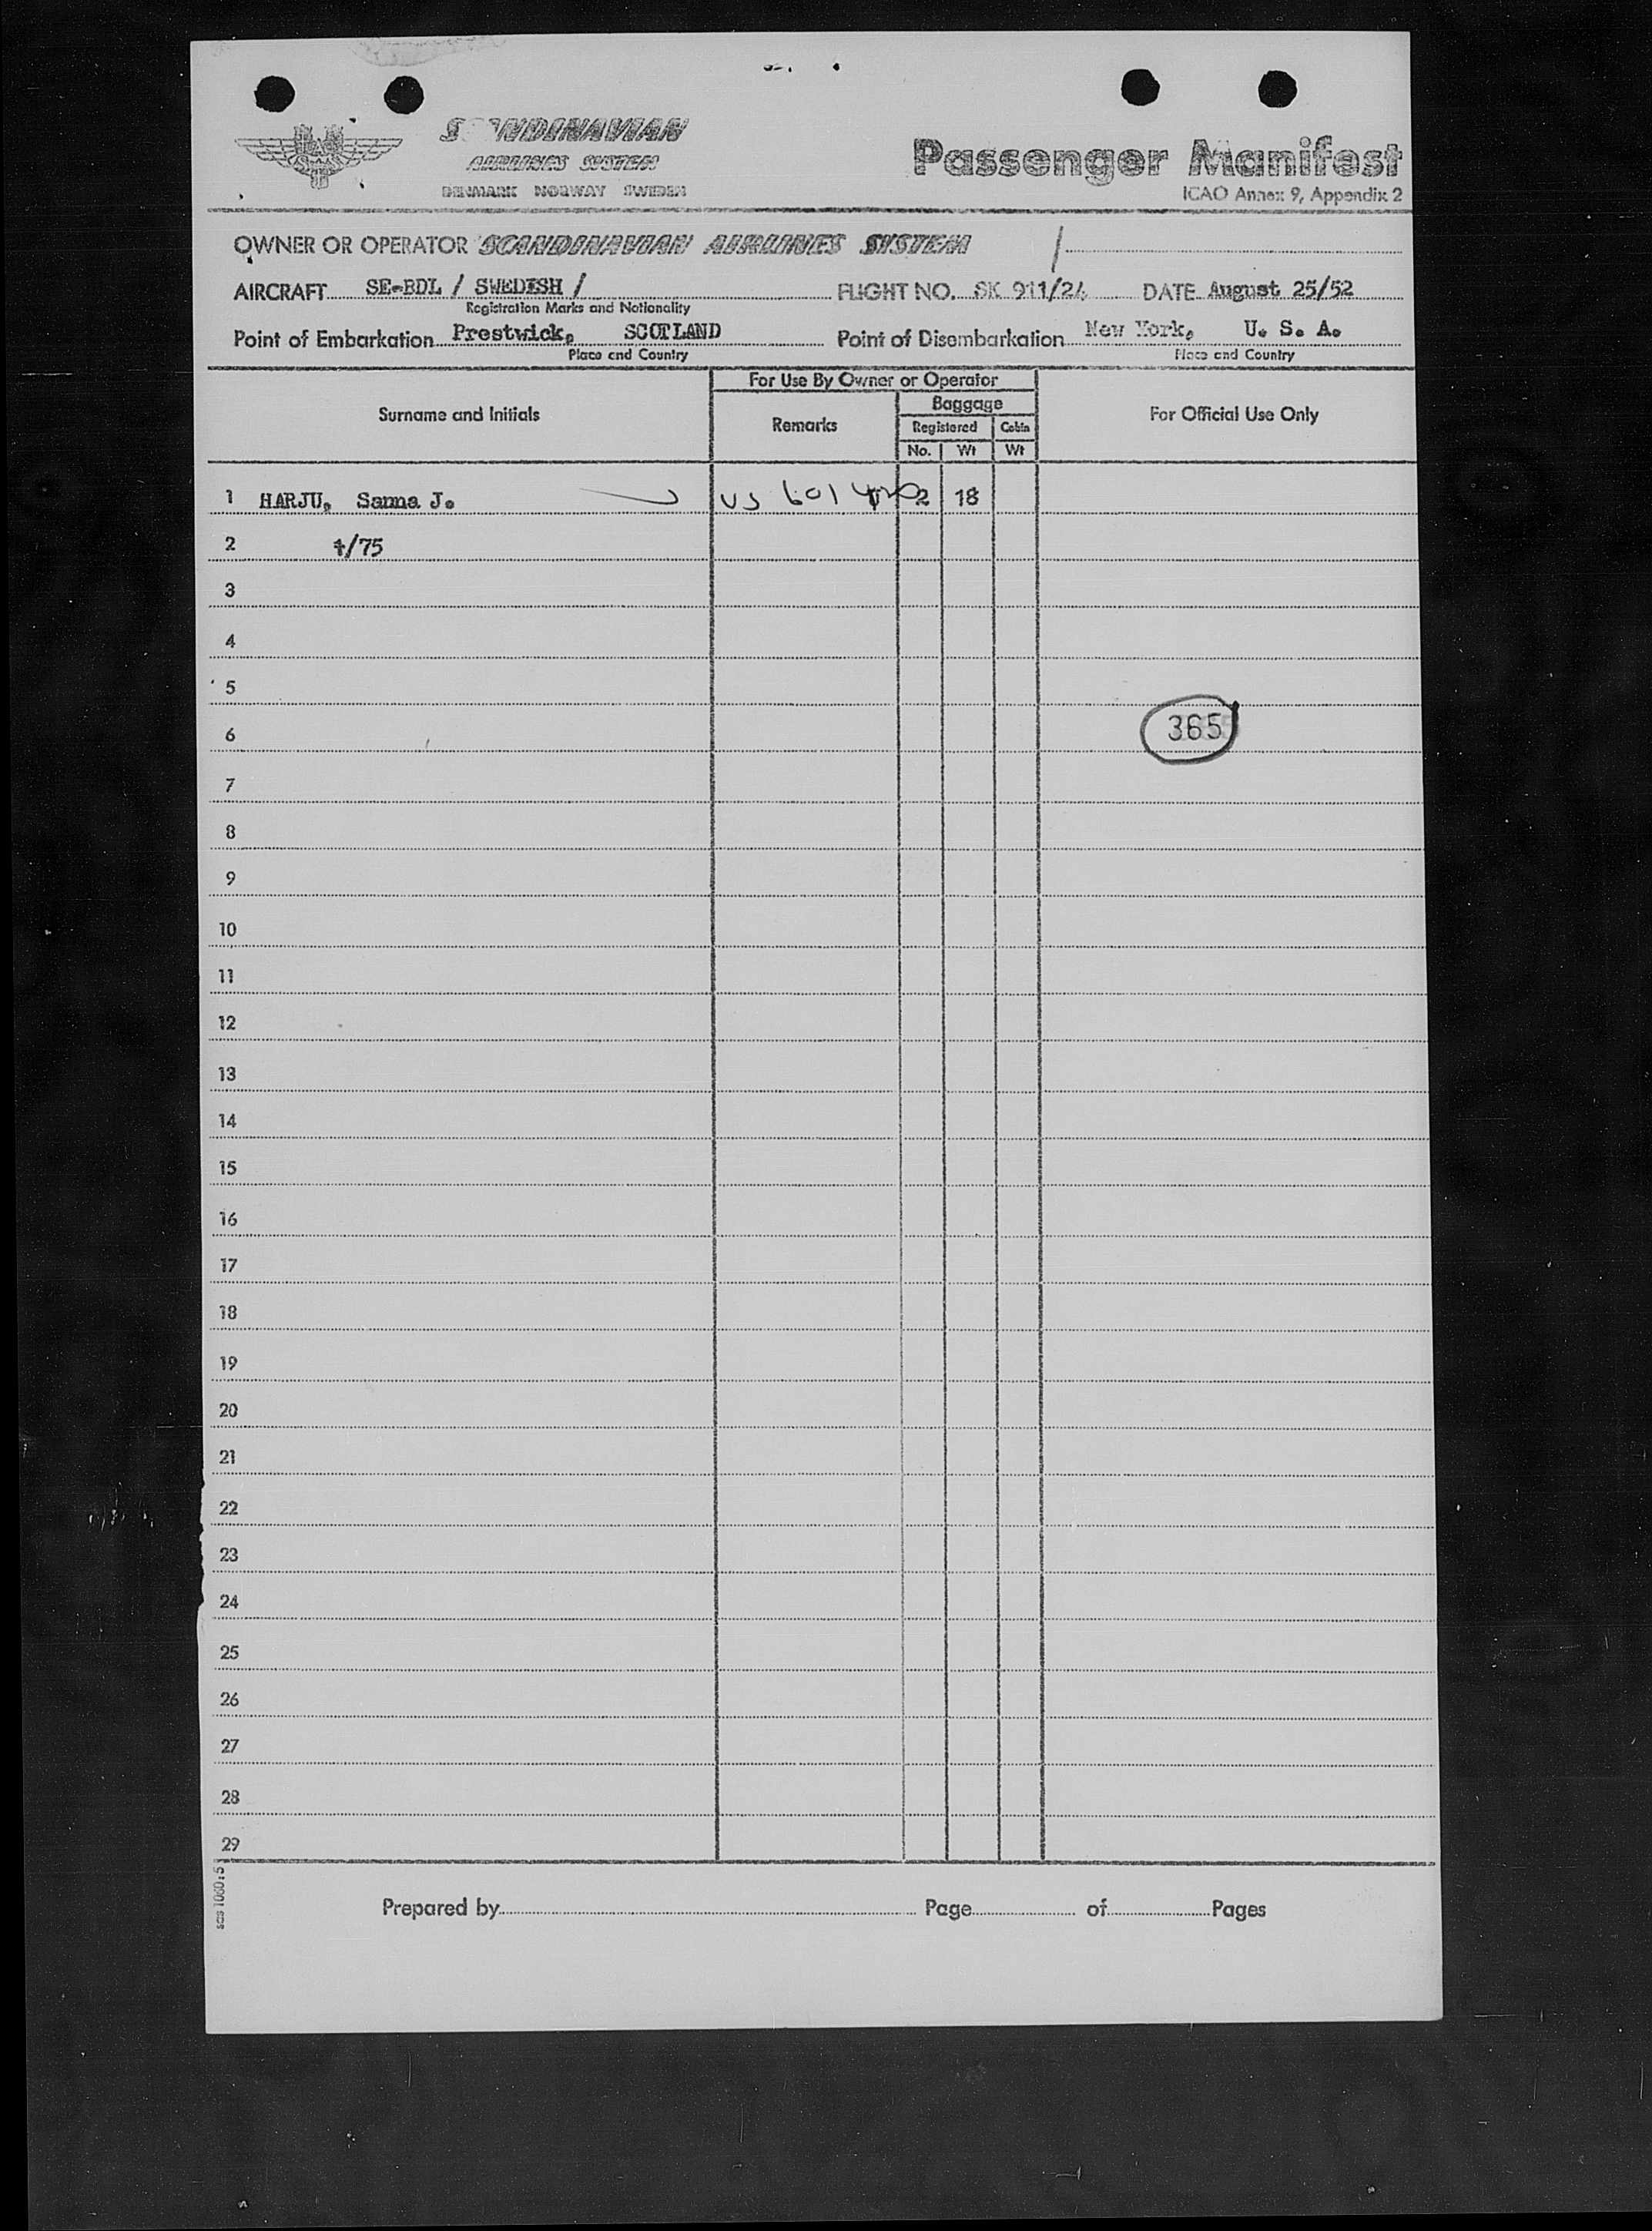 SCANDINAVIAN
AIRLINES SYSTEM
DENMARK NORWAY SWEDEN
Passenger Manifest
ICAO Annex 9, Appendix 2
OWNER OR OPERATOR SCANDINAVIAN AIRLINES SYSTEM /
AIRCRAFT SE-BDL / SWEDISH / FLIGHT NO. SK 911/24 DATE August 25/52
Registration Marks and Nationality
Point of Embarkation Prestwick, SCOTLAND Point of Disembarkation New York, U. S. A.
Place and Country Place and Country
For Use By Owner or Operator
Surname and Initials Remarks Baggage For Official Use Only
Registered Cabin
No. Wt Wt
1 HARJU, Sanna J. US 2 18
2 1/75
3
4
5
365
6
7
8
9
10
11
12
13
14
15
16
17
18
19
20
21
22
23
24
25
26
27
28
29
sas 1060:5
Prepared by Page of Pages